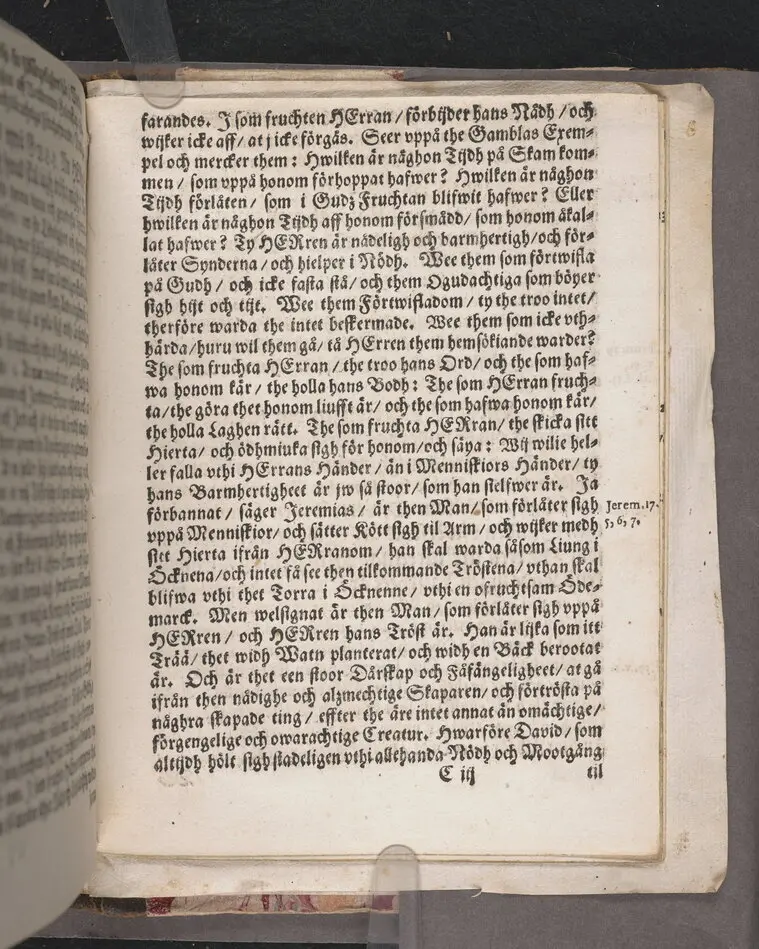 farandes. J som fruchten HErran / förbijder hans Nådh / och
wijker icke aff / at j icke förgås. Seer vppå the Gamblas Exem-
pel och mercker them: Hwilken är någhon Tijdh på Skam kom-
men / som vppå honom förhoppat hafwer? Hwilken är någhon
Tijdh förlåten / som i Gudz Fruchtan blifwit hafwer? Eller
hwilken är någhon Tijdh aff honom försmådd / som honom åkal-
lat hafwer? Ty HERren är nådeligh och barmhertigh / och för-
låter Synderna / och hielper i Nödh. Wee them som förtwifla
på Gudh / och icke fasta stå / och them Ogudachtiga som böyer
sigh hijt och tijt. Wee them Förtwifladom / ty the troo intet /
therföre warda the intet beskermade. Wee them som icke vth-
härda / huru wil them gå / tå HErren them hemsökiande warder?
The som fruchta HErran / the troo hans Ord / och the som haf-
wa honom kär / the holla hans Bodh: The som HErran fruch-
ta / the göra thet honom liufft är / och the som hafwa honom kär /
the holla Laghen rätt. The som fruchta HERran / the skicka sitt
Hierta / och ödhmiuka sigh för honom / och säya: Wij wilie hel-
ler falla vthi HErrans Händer / än i Menniskiors Händer / ty
hans Barmhertigheet är jw så stoor / som han sielfwer är. Ja
förbannat / säger Jeremias / är then Man / som förlåter sigh
vppå Menniskior / och sätter Kött sigh til Arm / och wijker medh
sitt Hierta ifrån HERranom / han skal warda såsom Liung i
Öcknena / och intet få see then tilkommande Tröstena / vthan skal
blifwa vthi thet Torra i Öcknenne / vthi en ofruchtsam Öde-
marck. Men welsignat är then Man / som förlåter sigh vppå
HERren / och HERren hans Tröst är. Han är lijka som itt
Trää / thet widh Watn planterat / och widh en Bäck berootat
är. Och är thet een stoor Dårskap och Fåfängeligheet / at gå
ifrån then nådighe och alzmechtige Skaparen / och förtrösta på
någhra skapade ting / effter the äre intet annat än omächtige /
förgengelige och owarachtige Creatur. Hwarföre David / som
altijdh hölt sigh stadeligen vthi allehanda Nödh och Mootgång
C iij til
Jerem. 17.
5, 6, 7.